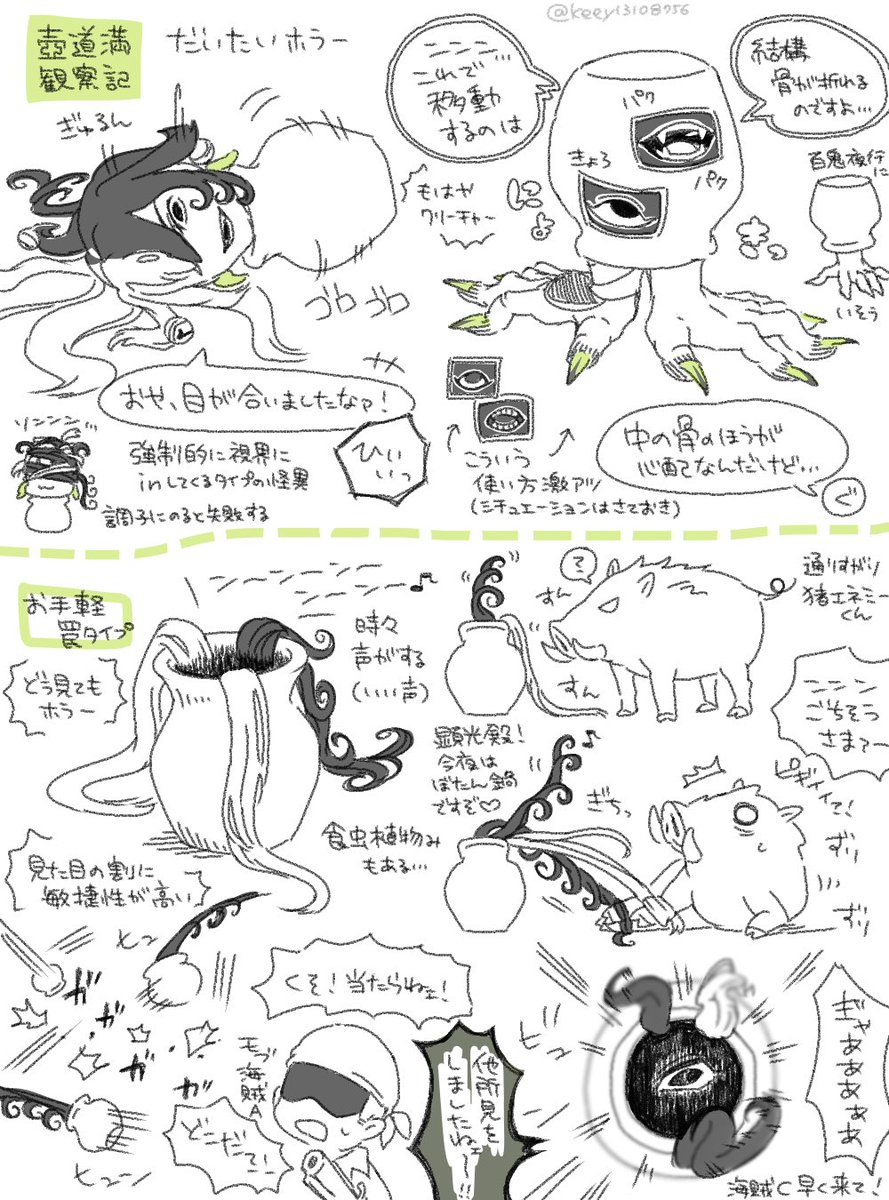 @keey13108756
壺道満
観察記
だいたいホラー
ぎゅるん
ゴロゴロ
おや、目が合いましたなァ!
ひぃ
いっ
ソンンン…
強制的に視界に
inしてくるタイプの怪異
調子にのると失敗する
ンンンン…
これで
移動
するのは
結構
骨が折れる
のですよ…
パク
きょろ
パク
もはや
クリーチャー
百鬼夜行
に
いそう
こういう
使い方激アツ
(シチュエーションはさておき)
中の骨のほうが
心配なんだけど…
ぐ
お手軽
罠タイプ
どう見ても
ホラー
時々
声がする
(いい声)
食虫植物み
もある…
見た目の割に
敏捷性が高い
すん
すん
通りすがり
猪エネミー
くん
ンンンン
ごちそう
さまァー
顕光殿!
今夜は
ぼたん鍋
ですぞ♡
ぎちっ
ピギィィて!
ずり
ずり
ヒュン
ガ
ガ
ガ
ガ
ヒューン
くそ!当たらねェ!
モブ
海賊A
どこだて!
他所見を
しましたねェ…!!
ヒュン
ぎゃああああぁ
海賊C早く来て!